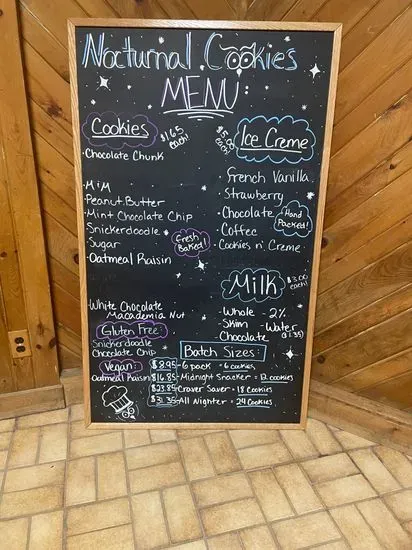 Nocturnal Cookies
MENU:
Cookies
$1.65 each!
• Chocolate Chunk
• M&M
• Peanut Butter
• Mint Chocolate Chip
• Snickerdoodle
• Sugar
• Oatmeal Raisin
Fresh Baked!
• White Chocolate
Macadamia Nut
Gluten Free:
Snickerdoodle
Chocolate Chip
Vegan:
Oatmeal Raisin
$5.00 each!
Ice Creme
• French Vanilla
• Strawberry
• Chocolate
• Coffee
• Cookies n' Creme
Hand Packed!
Milk
$3.00 each!
Whole - 2%
Skim - Water
Chocolate ($1.35)
Batch Sizes:
$8.95 - 6 pack = 6 cookies
$16.85 - Midnight Snacker = 12 cookies
$23.85 - Craver Saver = 18 Cookies
$31.35 - All Nighter = 24 Cookies